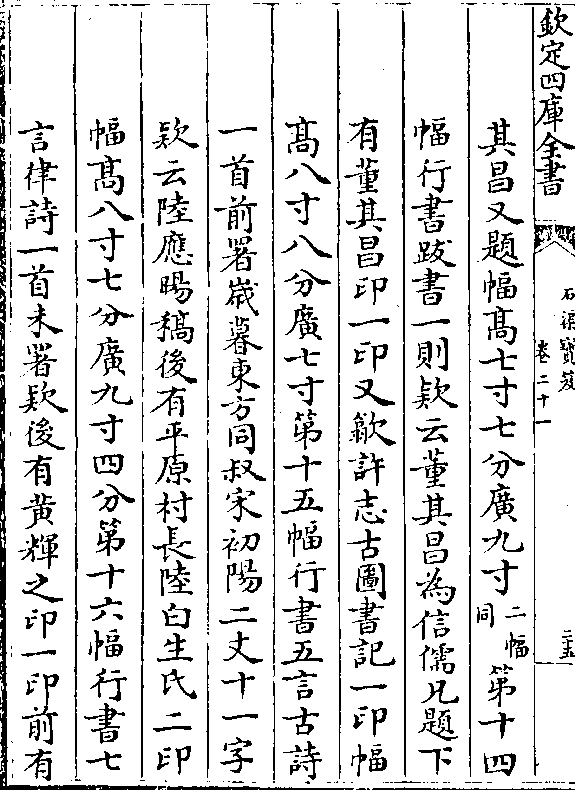 欽定四庫全書
石渠寶笈
卷二十一
其昌又題幅髙七寸七分廣九寸二幅同第十四
幅行書跋書一則欵云董其昌為信儒兄題下
有董其昌印一印又歙許志古圖書記一印幅
髙八寸八分廣七寸第十五幅行書五言古詩
一首前署嵗暮東方同叔宋初陽二丈十一字
欵云陸應陽稿後有平原村長陸白生氏二印
幅髙八寸七分廣九寸四分第十六幅行書七
言律詩一首未署欵後有黄輝之印一印前有